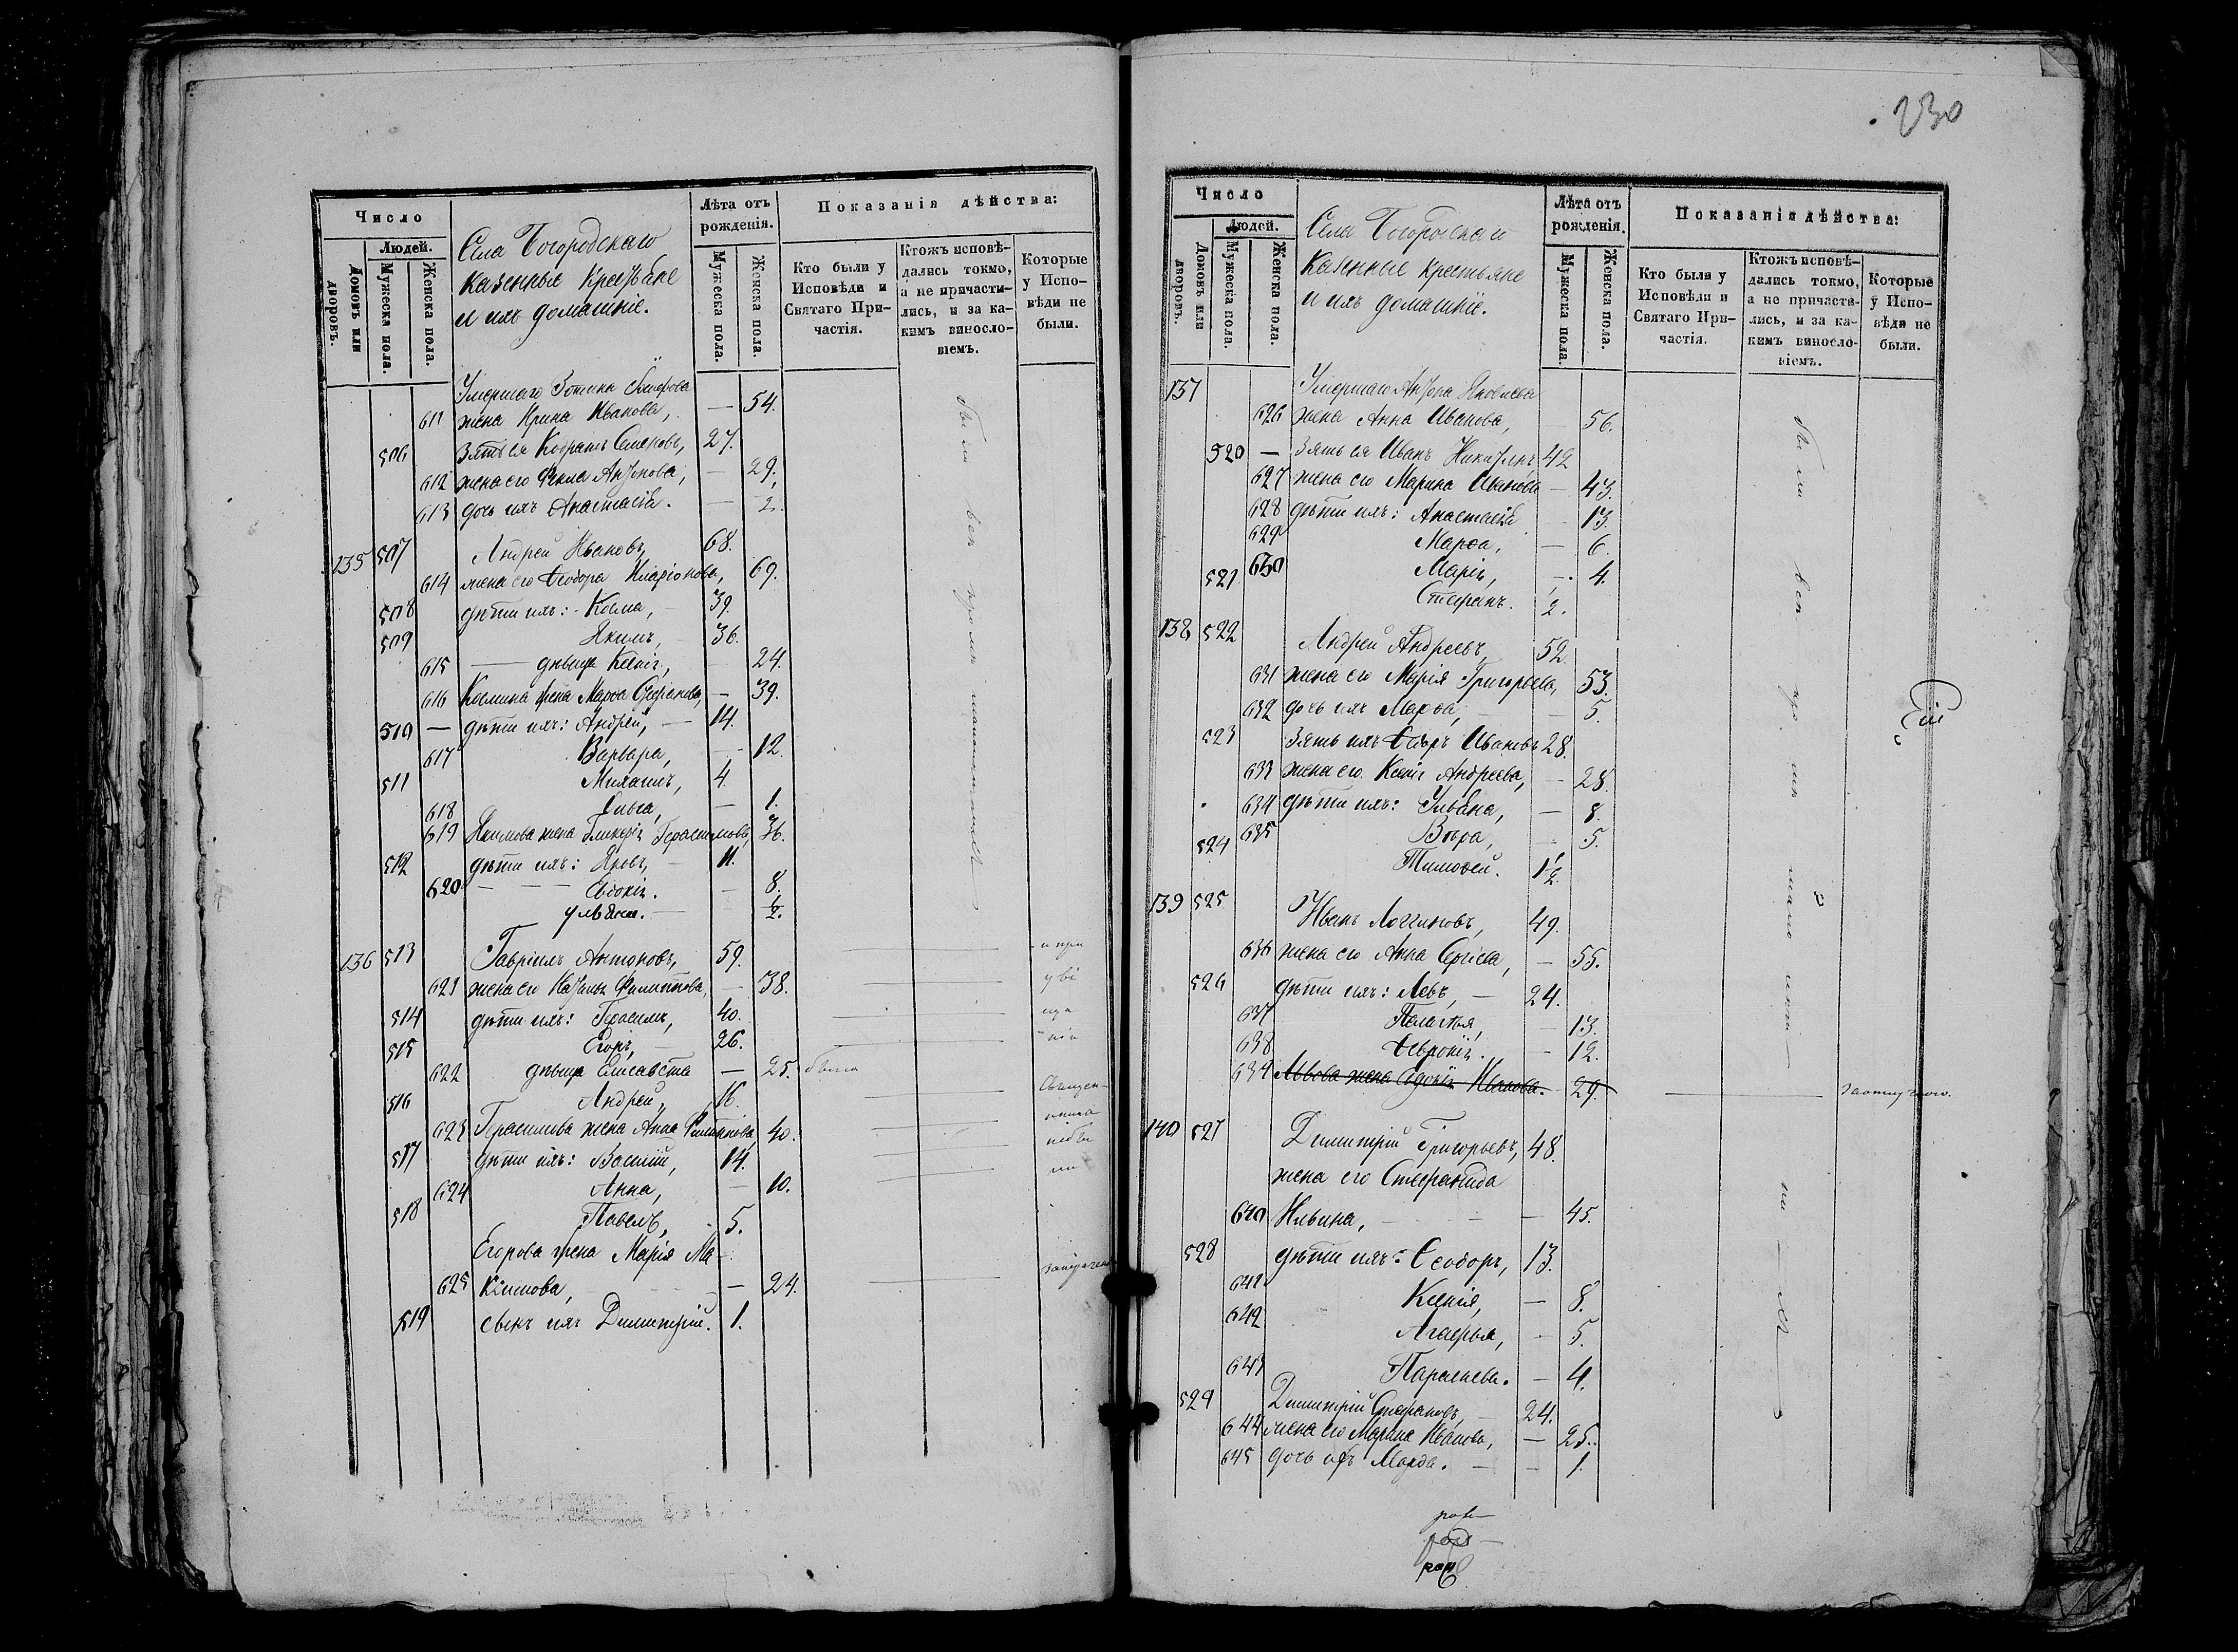 230
Число
Домовъ или дворовъ.
Людей.
Мужеска пола.
Женска пола.
Села Богородскаго
казенные крестьяне
и ихъ домашніе.
Лѣта отъ рожденія.
Мужеска пола.
Женска пола.
Показанія дѣйства:
Кто были у Исповѣди и Святаго Причастія.
Ктожъ исповѣдались токмо, а не причастились, и за какимъ винословіемъ.
Которые у Исповѣди не были.
Умершаго
611 жена Ирина Иванова, — 54.
506 Зять ея Кодратъ Семеновъ, 27.
612 жена его Фекла Антонова, — 29.
613 дочь ихъ Анастасія. — 2.
135 507 Андрей Ивановъ, 68.
614 жена его Ѳеодора Иларіонова, 69.
508 дѣти ихъ: Косма, — 39.
509 Якимъ, — 36.
615 — дѣвица Ксенія, 24.
616 Космина жена Марѳа Стефанова, — 39.
510 — дѣти ихъ: Андрей, — 14.
617 Варвара, — 12.
511 Михаилъ, 4.
618 Ольга, — 1.
619 Якимова жена Гликерія Герасимова, 36.
512 дѣти ихъ: Яковъ, — 11.
620 — Евдокія. — 8.
Ульяна. — 1/2.
136 513 Гавріилъ Антоновъ, 59.
621 жена его Наталья Филиппова, — 38.
514 дѣти ихъ: Герасимъ, 40.
515 Егоръ, — 26.
622 дѣвица Елисавета — 25. была
516 Андрей, 16.
623 Герасимова жена Анна Филиппова, 40.
517 дѣти ихъ: Василій, 14.
624 Анна, — 10.
518 Павелъ, 5.
Егорова жена Марія Ма-
625 ксимова, — 24.
519 сынъ ихъ Димитрій. 1.
Число
Домовъ или дворовъ.
Людей.
Мужеска пола.
Женска пола.
Села Богородскаго
казенные крестьяне
и ихъ домашніе.
Лѣта отъ рожденія.
Мужеска пола.
Женска пола.
Показанія дѣйства:
Кто были у Исповѣди и Святаго Причастія.
Ктожъ исповѣдались токмо, а не причастились, и за какимъ винословіемъ.
Которые у Исповѣди не были.
137 Умершаго Яковлева
626 жена Анна Иванова, 56.
520 — Зять ея Иванъ Никитинъ 42
627 жена его Марина Иванова — 43.
628 дѣти ихъ: Анастасія — 13.
629 Марѳа, — 6.
630 Марія, — 4.
521 Стефанъ. 2.
138 522 Андрей Андреевъ, 52.
631 жена его Марія Григорьева, 53.
632 дочь ихъ Марѳа, — 5.
523 Зять ихъ Ивановъ 28.
633 жена его Ксенія Андреева, — 28.
634 дѣти ихъ: Ульяна, — 8.
635 Вѣра, — 5.
524 Тимоѳей. 1/2.
139 525 Иванъ Логгиновъ, 49.
636 жена его Анна Сергіева, — 55.
526 дѣти ихъ: Левъ, — 24.
637 Пелагія, — 13.
638 Февронія. — 12.
639 Львова жена Евдокія Иванова. 29.
140 527 Димитрій Григорьевъ, 48.
жена его Стефанида
640 Ильина, — 45.
528 дѣти ихъ: Ѳеодоръ, 13.
641 Ксенія, — 8.
642 Агафья, — 5.
643 Параскева. — 4.
529 Димитрій Стефановъ, — 24.
644 жена его Марина Иванова, — 25.
645 дочь ихъ Марѳа. — 1.